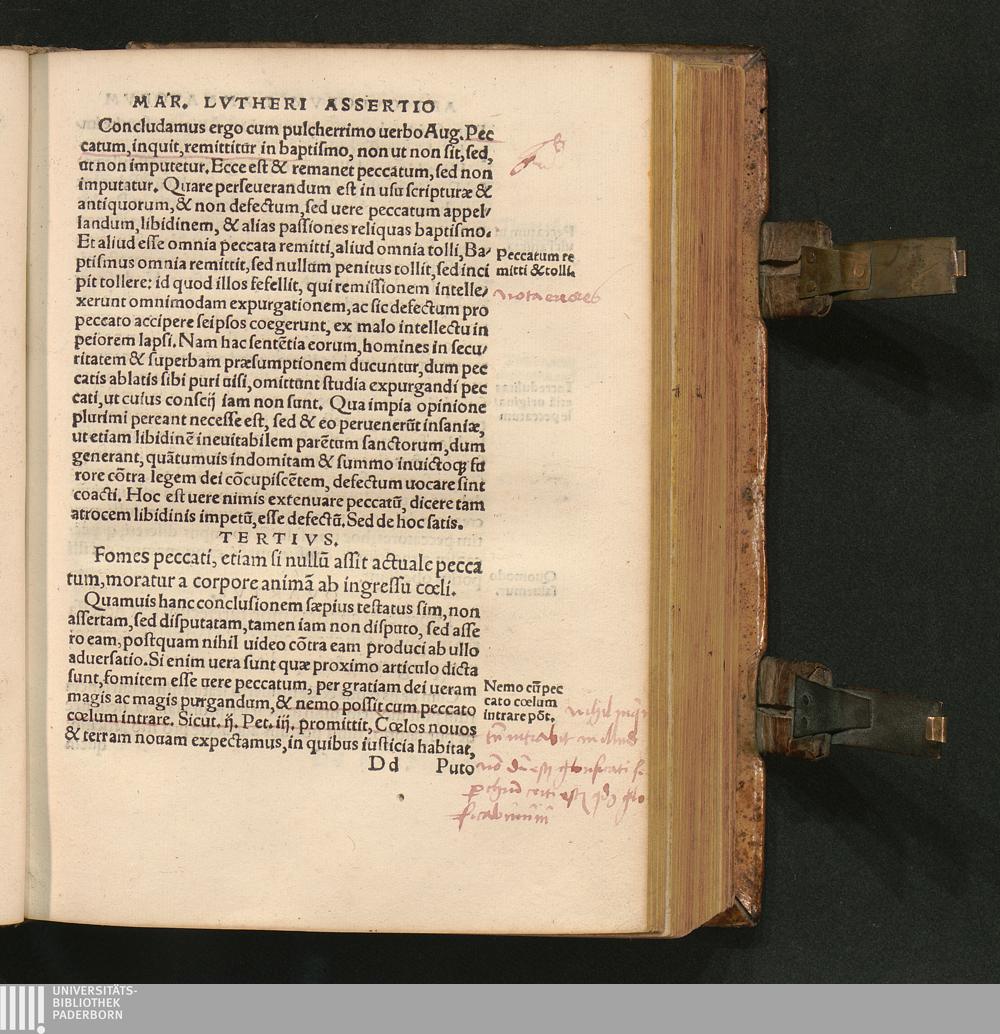 MAR. LVTHERI ASSERTIO
Concludamus ergo cum pulcherrimo uerbo Aug. Pec
catum, inquit, remittitur in baptismo, non ut non sit, sed,
ut non imputetur. Ecce est & remanet peccatum, sed non
imputatur. Quare perseuerandum est in usu scripturæ &
antiquorum, & non defectum, sed uere peccatum appel/
landum, libidinem, & alias passiones reliquas baptismo.
Et aliud esse omnia peccata remitti, aliud omnia tolli, Ba/
ptismus omnia remittit, sed nullum penitus tollit, sed inci
pit tollere: id quod illos fefellit, qui remissionem intelle/
xerunt omnimodam expurgationem, ac sic defectum pro
peccato accipere seipsos coegerunt, ex malo intellectu in
peiorem lapsi. Nam hac sentētia eorum, homines in secu/
ritatem & superbam præsumptionem ducuntur, dum pec
catis ablatis sibi puri uisi, omittunt studia expurgandi pec
cati, ut cuius conscij iam non sunt. Qua impia opinione
plurimi pereant necesse est, sed & eo peruenerūt insaniæ,
ut etiam libidinē ineuitabilem parētum sanctorum, dum
generant, quātumuis indomitam & summo inuictoq; fu
rore cōtra legem dei cōcupiscētem, defectum uocare sint
coacti. Hoc est uere nimis extenuare peccatū, dicere tam
atrocem libidinis impetū, esse defectū. Sed de hoc satis.
TERTIVS.
Fomes peccati, etiam si nullū assit actuale pecca
tum, moratur a corpore animā ab ingressu cœli.
Quamuis hanc conclusionem sæpius testatus sim, non
assertam, sed disputatam, tamen iam non disputo, sed asse
ro eam, postquam nihil uideo cōtra eam produci ab ullo
aduersatio. Si enim uera sunt quæ proximo articulo dicta
sunt, fomitem esse uere peccatum, per gratiam dei ueram
magis ac magis purgandum, & nemo possit cum peccato
cœlum intrare. Sicut. ij. Pet. iij. promittit, Cœlos nouos
& terram nouam expectamus, in quibus iusticia habitat,
Dd Puto
Peccatum re
mitti & tolli.
nota errores
Nemo cū pec
cato cœlum
intrare pōt.
UNIVERSITÄTS-
BIBLIOTHEK
PADERBORN